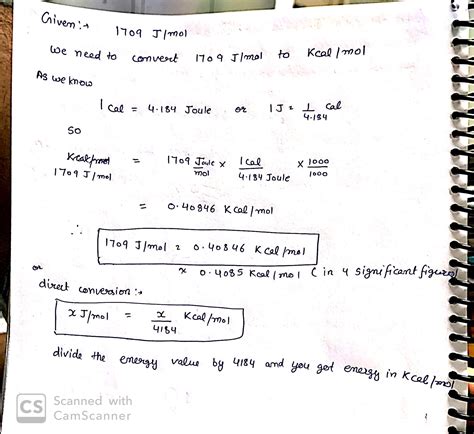 Given:→ 1709 J/mol
We need to convert 1709 J/mol to Kcal/mol
As we know
1 Cal = 4.184 Joule or 1J = 1/4.184 Cal
SO
1709 J/mol = 1709 Joule/mol × 1Cal/4.184 Joule × 1000/1000
= 0.40846 Kcal/mol
∴ 1709 J/mol = 0.40846 Kcal/mol
≈ 0.4085 Kcal/mol (in 4 significant figures)
or
direct conversion:→
x J/mol = x/4184 Kcal/mol
divide the energy value by 4184 and you get energy in Kcal/mol
CS Scanned with
CamScanner